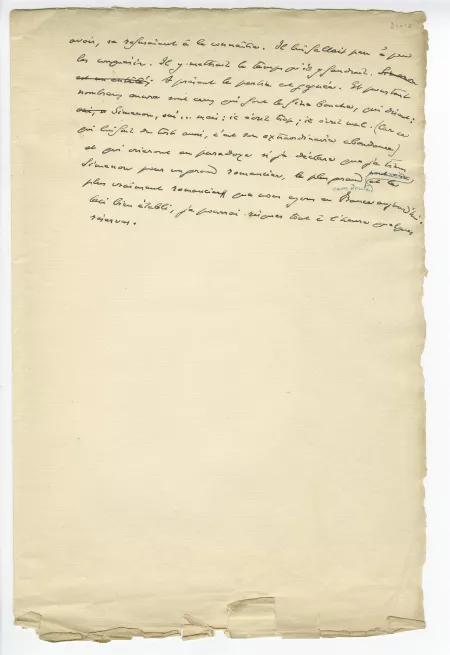 avoir, se refusaient à le connaître. Il lui fallait peu à peu
les conquérir. Il y mettrait le temps qu'il y faudrait.
A présent la partie est gagnée. Et pourtant
nombreux encore sont ceux qui font la fine bouche, qui disent:
« Simenon, oui... mais; il écrit trop; il écrit mal. (car ce
qui lui fait du tort aussi, c'est son extraordinaire abondance)
et qui crieront au paradoxe si je déclare que je tiens
Simenon pour un grand romancier, le plus grand peut-être et le
sans doute
plus vraiment romancier que nous ayons en France aujourd'hui.
Ceci bien établi, je pourrai risquer tout à l'heure quelques
réserves.